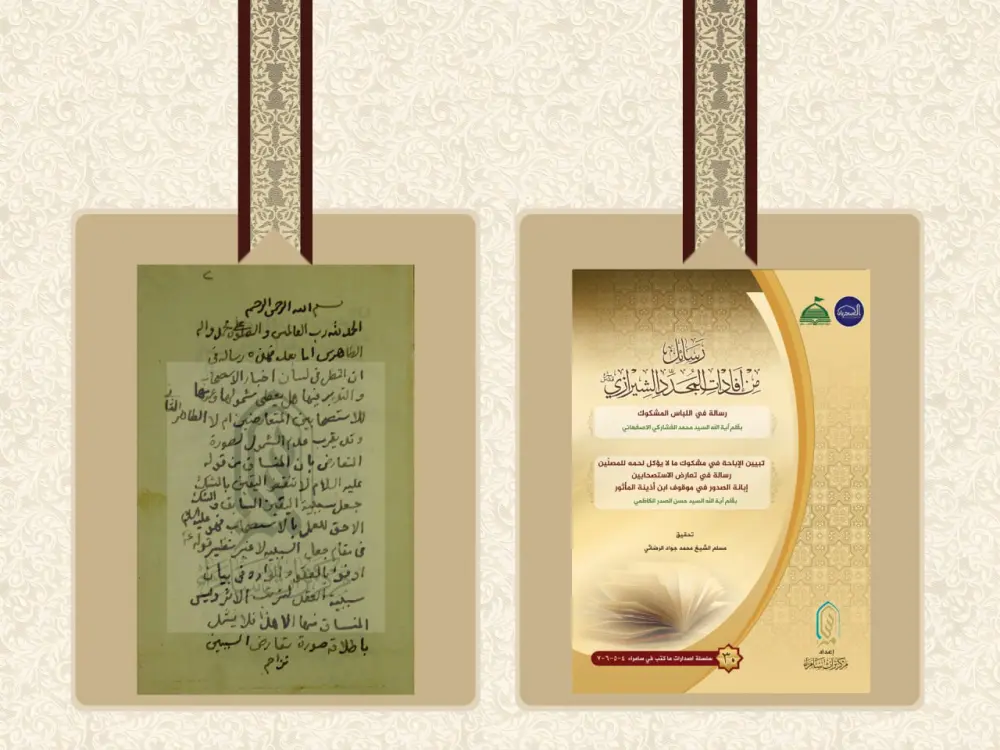 بسم الله الرحمن الرحيم
الحمد لله رب العالمين و الصلوة على محمد واله
الطاهرين اما بعد فهذه رسالة في
ان الاصل في لسان أخبار الاستصحاب
و التدبر فيها هل يعطي شمولها
للاستصحابين المتعارضين ام لا الظاهر الثاني
و قد يقرب عدم الشمول لصورة
التعارض بان المنساق من قوله
عليه السلام لا تنقض اليقين بالشك
جعل سببية اليقين السابق و الشك
اللاحق للعمل بالاستصحاب فهو
في مقام جعل السببية لا غير نظير قوله
اوفوا بالعقود في بيان
سببية العقد
المنساق منها الا هذا فلا يشمل
باطلاقه صورة تعارض السببين
تزاحم
الصدرية
رسائل
من إفادات المجدد الشيرازي
رسالة في اللباس المشكوك
بقلم آية الله السيد محمد الفشاركي الاصفهاني
تبيين الإباحة في مشكوك ما لا يؤكل لحمه للمصلّين
رسالة في تعارض الاستصحابين
إبانة الصدور في موقوف ابن أذينة المأثور
بقلم آية الله السيد حسن الصدر الكاظمي
تحقيق
مسلم الشيخ محمد جواد الرضائي
إعداد
مركز تراث سامراء
سلسلة اصدارات ما كتب في سامراء ٤-٥-٦-٧
٣٠